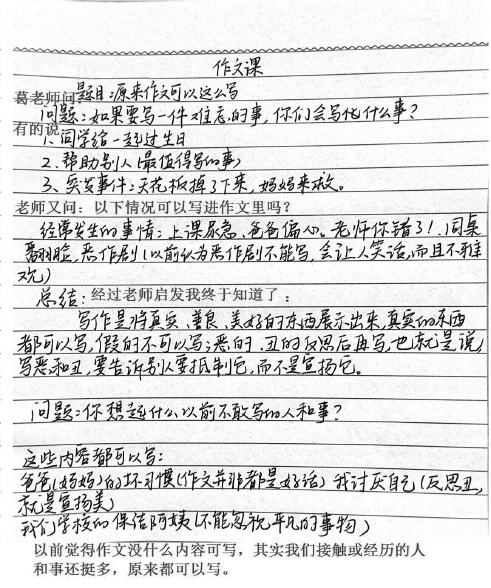 作文课
葛老师问：
题目：原来作文可以这么写
问题：如果要写一件难忘的事，你们会写他什么事？
有的说
1、同学给一起过生日
2、帮助别人（最值得写的事）
3、突发事件：天花板掉了下来，妈妈来救。
老师又问：以下情况可以写进作文里吗？
经常发生的事情：上课尿急、爸爸偏心。老师你错了！、同桌
翻脸，恶作剧（以前认为恶作剧不能写，会让人笑话，而且不难
忘）
总结：经过老师启发我终于知道了：
写作是将真实、善良、美好的东西展示出来，真实的东西
都可以写，假的不可以写；恶的、丑的反思后再写，也就是说，
写恶和丑，要告诉别人要抵制它，而不是宣扬它。
问题：你想起什么以前不敢写的人和事？
这些内容都可以写：
爸爸（妈妈）的坏习惯（作文并非都是好话）我讨厌自己（反思丑，
就是宣扬美）
我们学校的保洁阿姨（不能忽视平凡的事物）
以前觉得作文没什么内容可写，其实我们接触或经历的人
和事还挺多，原来都可以写。